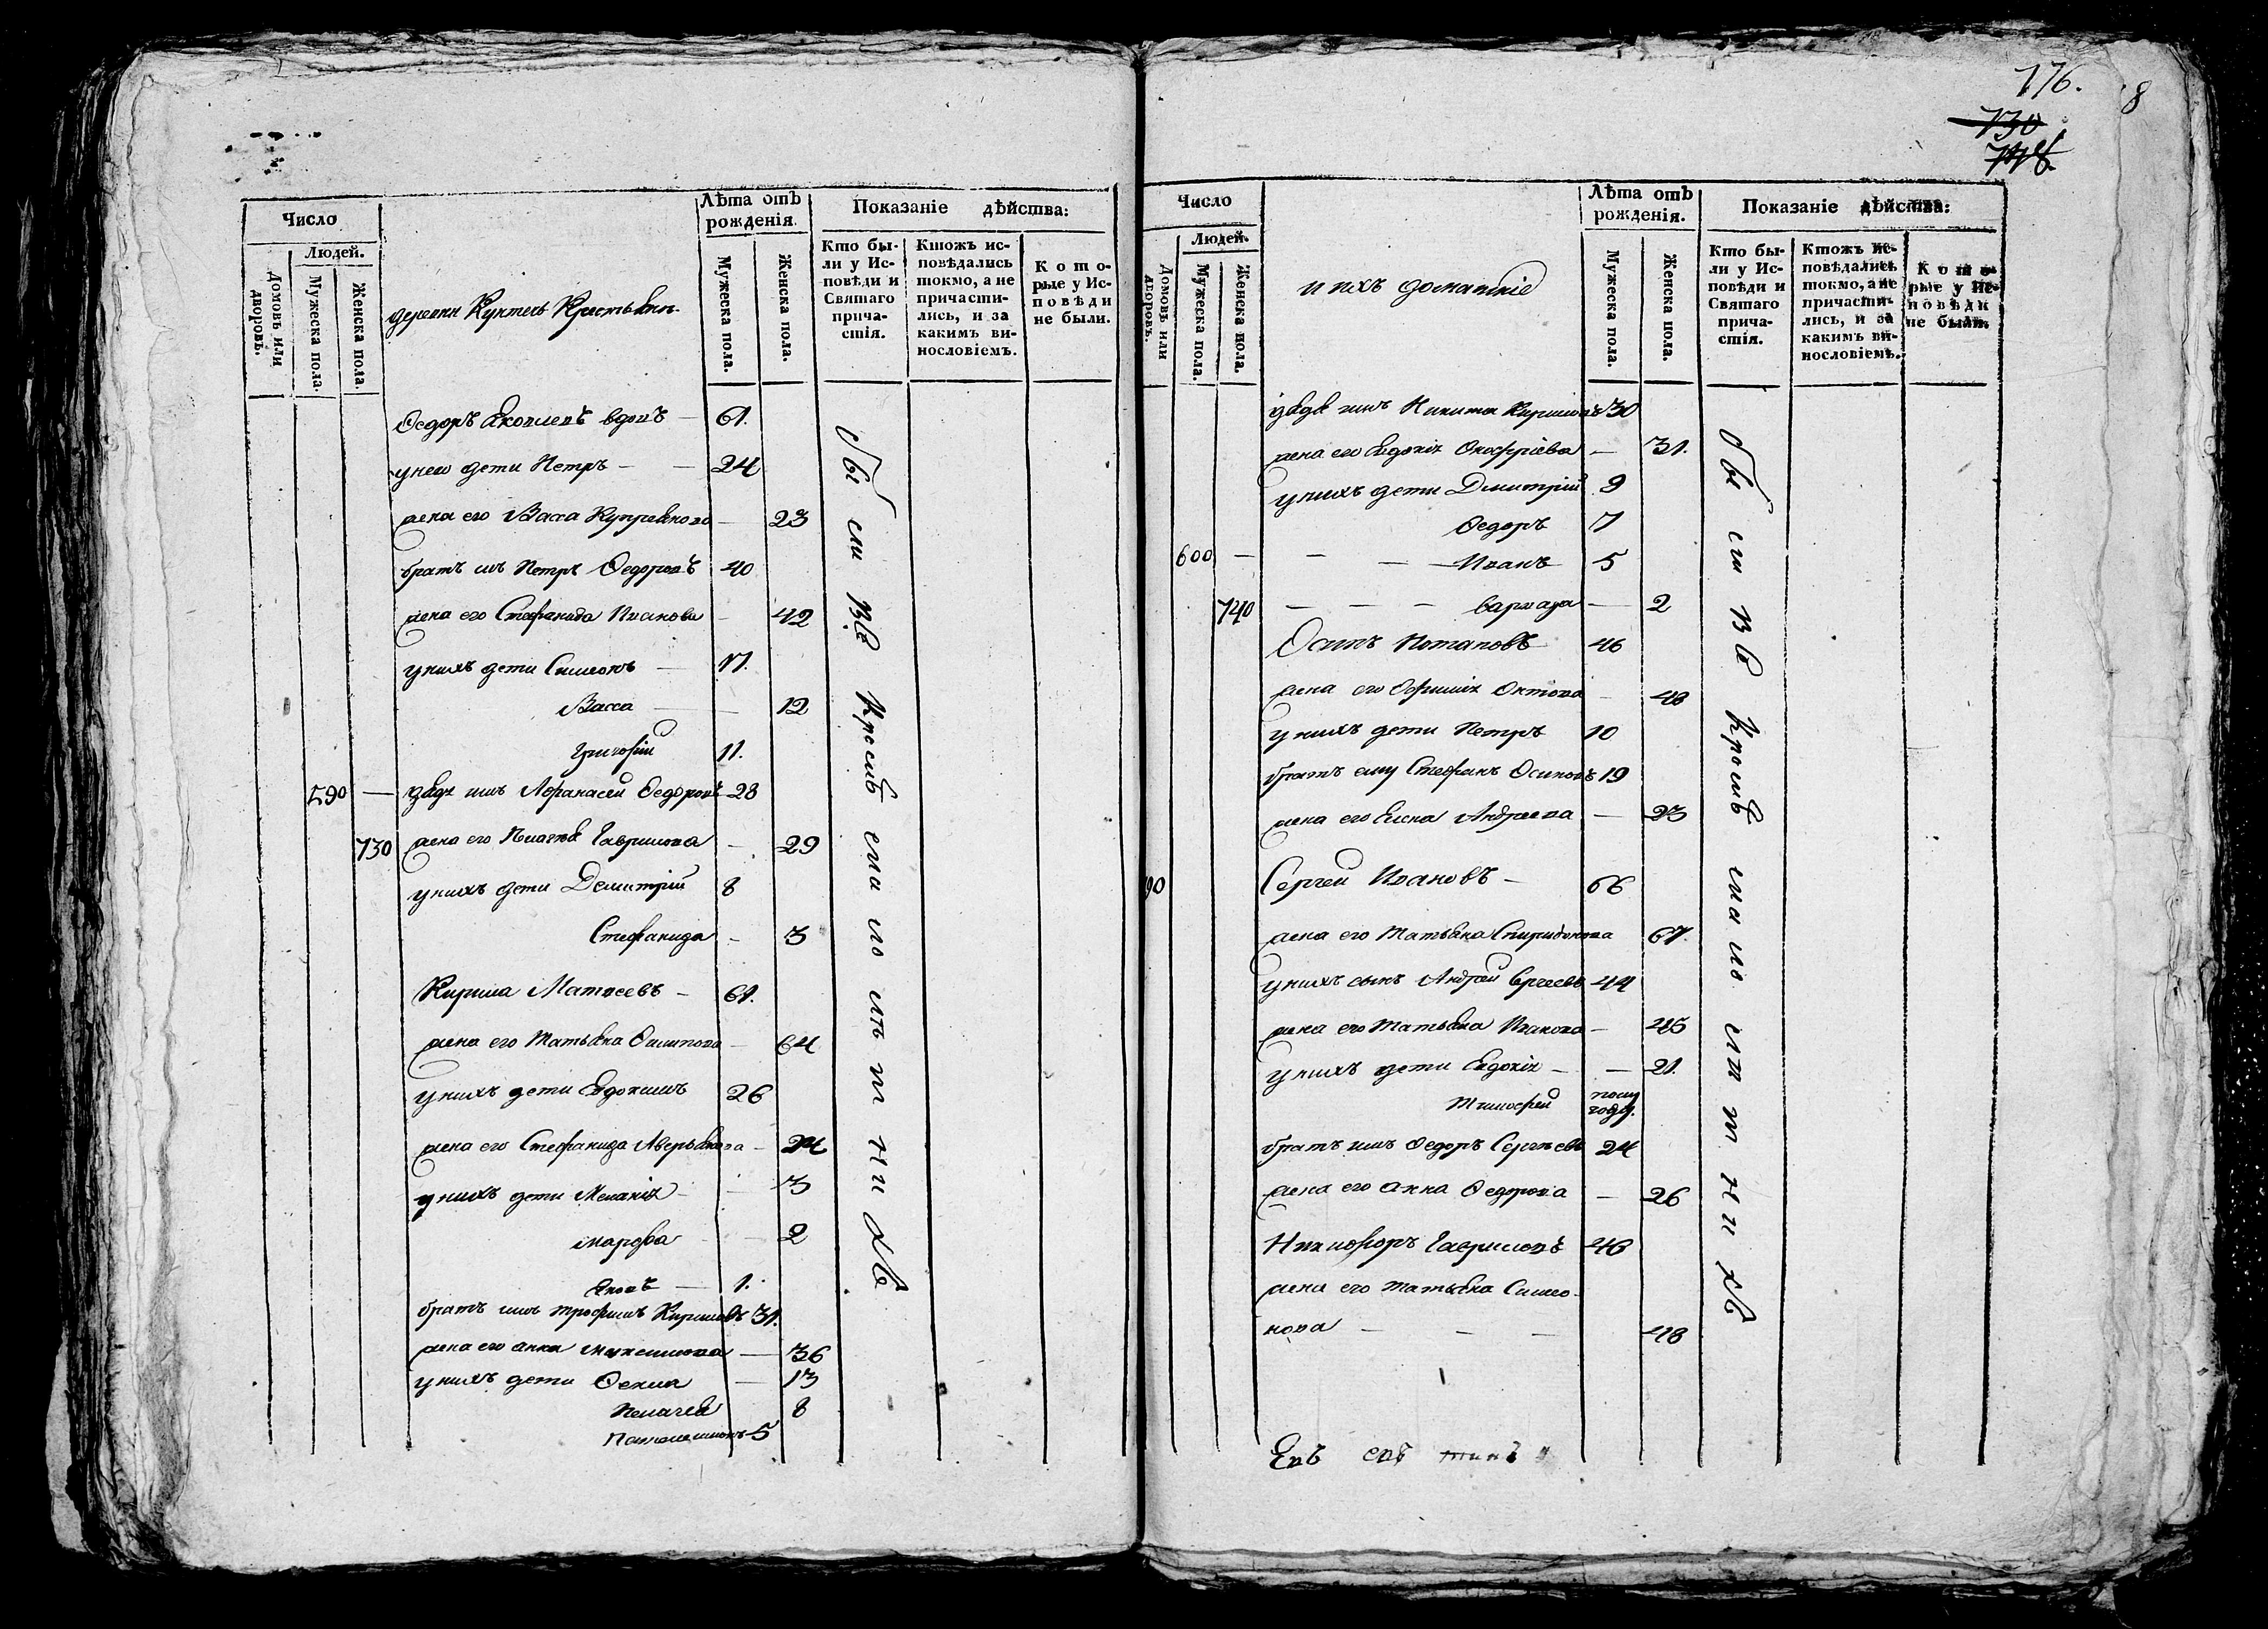 Число
Людей.
Домовъ или дворовъ.
Мужеска пола.
Женска пола.
деревни Крестьянъ
Лѣта отъ рожденія.
Мужеска пола.
Женска пола.
Показаніе дѣйства:
Кто бы-
ли у Ис-
повѣди и
Святаго
прича-
стія.
Ктожъ ис-
повѣдались
токмо, а не
причасти-
лись, и за
какимъ ви-
нословіемъ.
Кото-
рые у Ис-
повѣди
не были.
Ѳедоръ Яковлевъ вдовъ — 61.
у него дети Петръ — — 24
жена его Васса — 23
братъ имъ Петръ Ѳедоровъ 40
жена его Стефанида Иванова — 42
у нихъ дети Симеонъ — 17.
Васса — — 12
Григорій 11.
590 — дядя имъ Афанасей Ѳедоровъ 28
730 жена его Пелагея Гаврилова — 29
у нихъ дети Демитрій 8
Стефанида — 3
Кирила Матвеевъ — 61.
жена его Татьяна Филипова — 64
у нихъ дети Евдокимъ 26
жена его Стефанида Аверьянова — 24
у нихъ дети Меланія — — 3
марфа — 2
Яковъ — 1.
братъ имъ трофимъ Кириловъ 31.
жена его анна максимова — 36
у нихъ дети Ѳекла — 13
Пелагея 8
Пателеимонъ 5
обы ли все кроме мало летнихъ
176.
8
730
Число
Людей.
Домовъ или дворовъ.
Мужеска пола.
Женска пола.
и ихъ домашніе
Лѣта отъ рожденія.
Мужеска пола.
Женска пола.
Показаніе дѣйства:
Кто бы-
ли у Ис-
повѣди и
Святаго
прича-
стія.
Ктожъ ис-
повѣдались
токмо, а не
причасти-
лись, и за
какимъ ви-
нословіемъ.
Кото-
рые у Ис-
повѣди
не были.
дядя имъ Никита Кириловъ 30
жена его Евдокія — 31.
у нихъ дети Дмитрій 9
Ѳедоръ 7
600 — — — Иванъ 5
740 — — — варвара — 2
Осипъ Потаповъ 46
жена его — 48
у нихъ дети Петръ 10
братъ ему Стефанъ Осиповъ 19
жена его Елена Андреева — 23
90 Сергей Ивановъ — 66
жена его Татьяна Спиридонова 67.
у нихъ сынъ Андрей Сергеевъ 44
жена его Татьяна Иванова — 45
у нихъ дети Евдокія — — 21.
Тимофей полу
году.
братъ имъ Ѳедоръ Сергѣевъ 24
жена его анна Ѳедорова — 26
Никифоръ Гавриловъ 46
жена его татьяна Симео-
нова — — — 48